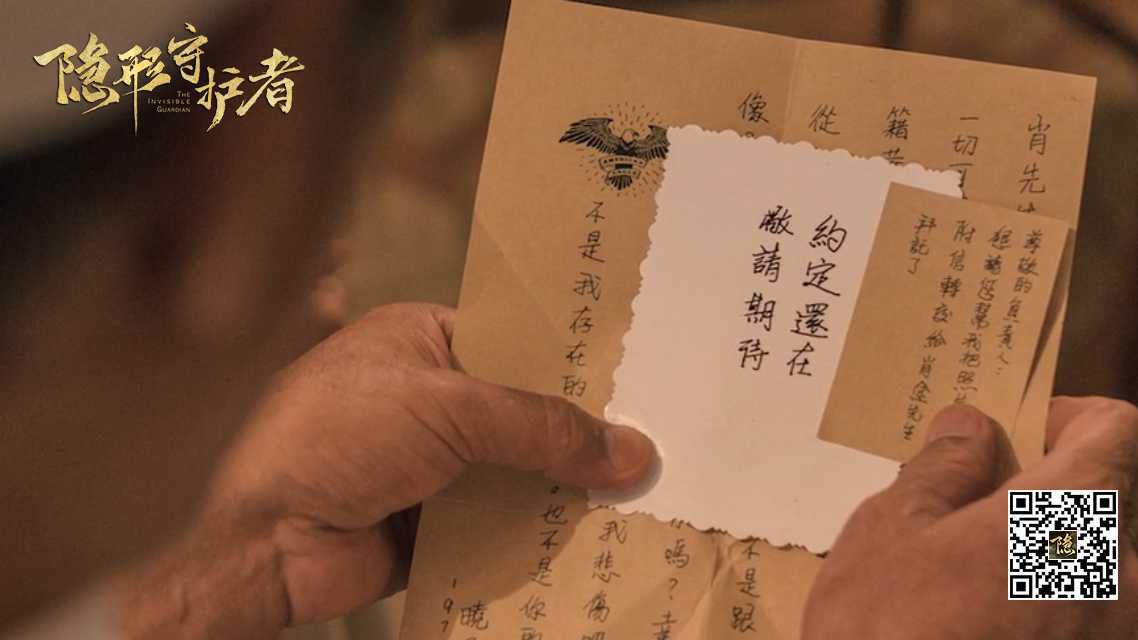 隐形守护者
THE
INVISIBLE
GUARDIAN
肖先
一切
籍
從
像
AMERICAN
不是我存在的
約定還在
敬請期待
尊敬的負責人：
想請您幫我把照
附信轉交給肖途先生
拜託了
不是跟
嗎？幸
我悲傷
。也不是你的
曉
197
隐